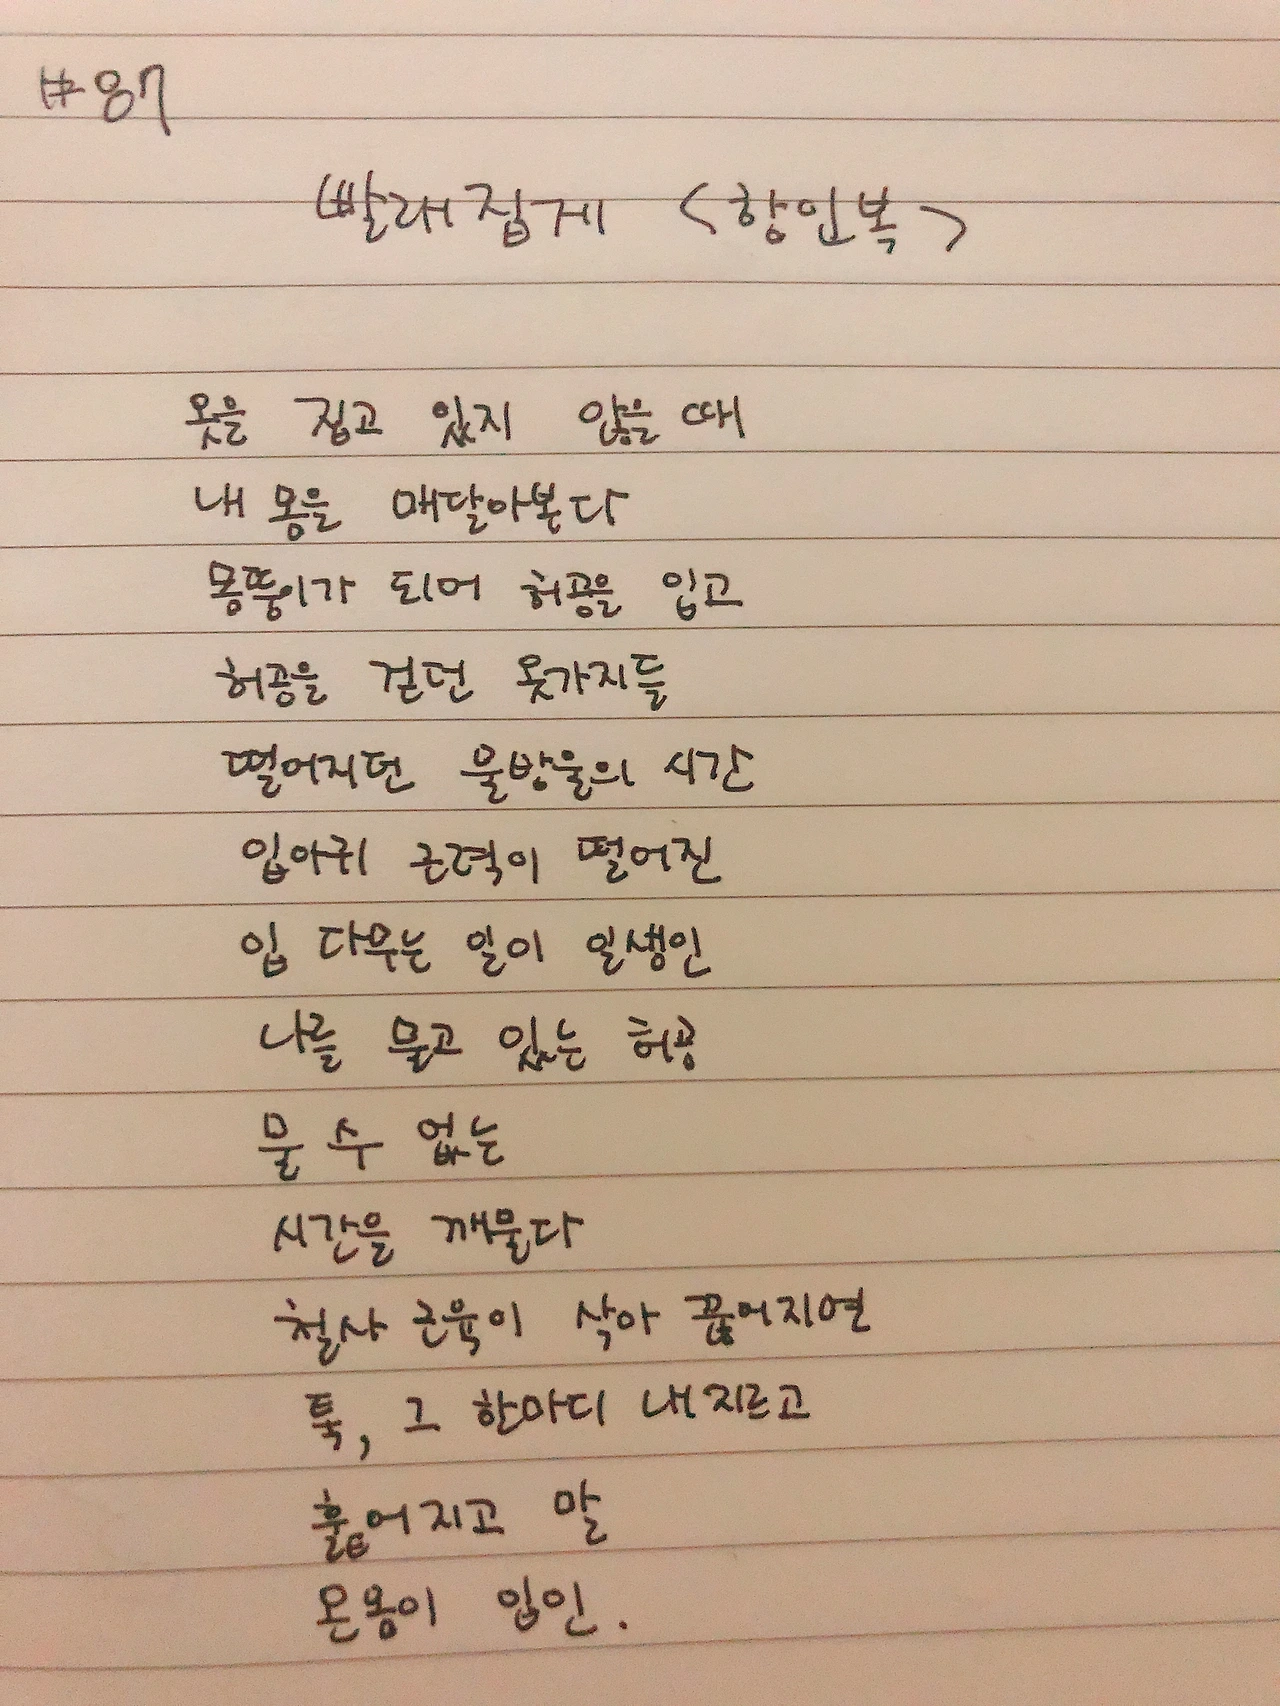 #87
빨래집게 <항인복>
옷을 집고 있지 않을 때
내 몸을 매달아본다
몸뚱이가 되어 허공을 입고
허공을 걷던 옷가지들
떨어지던 물방울의 시간
입아귀 근력이 떨어진
입 다무는 일이 일생인
나를 물고 있는 허공
물 수 없는
시간을 깨물다
철사 근육이 삭아 끊어지면
툭, 그 한마디 내지르고
흩어지고 말
온몸이 입인.